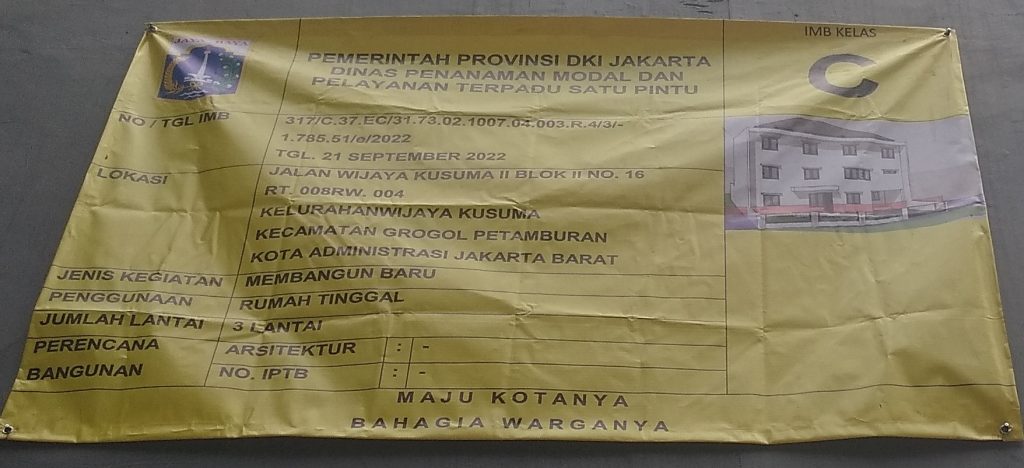 JAYA RAYA
IMB KELAS
C
PEMERINTAH PROVINSI DKI JAKARTA
DINAS PENANAMAN MODAL DAN
PELAYANAN TERPADU SATU PINTU
NO / TGL IMB
317/C.37.EC/31.73.02.1007.04.003.R.4/3/-
1.785.51/e/2022
TGL. 21 SEPTEMBER 2022
LOKASI
JALAN WIJAYA KUSUMA II BLOK II NO. 16
RT. 008RW. 004
KELURAHANWIJAYA KUSUMA
KECAMATAN GROGOL PETAMBURAN
KOTA ADMINISTRASI JAKARTA BARAT
JENIS KEGIATAN MEMBANGUN BARU
PENGGUNAAN RUMAH TINGGAL
JUMLAH LANTAI 3 LANTAI
PERENCANA ARSITEKTUR : -
BANGUNAN NO. IPTB : -
MAJU KOTANYA
BAHAGIA WARGANYA